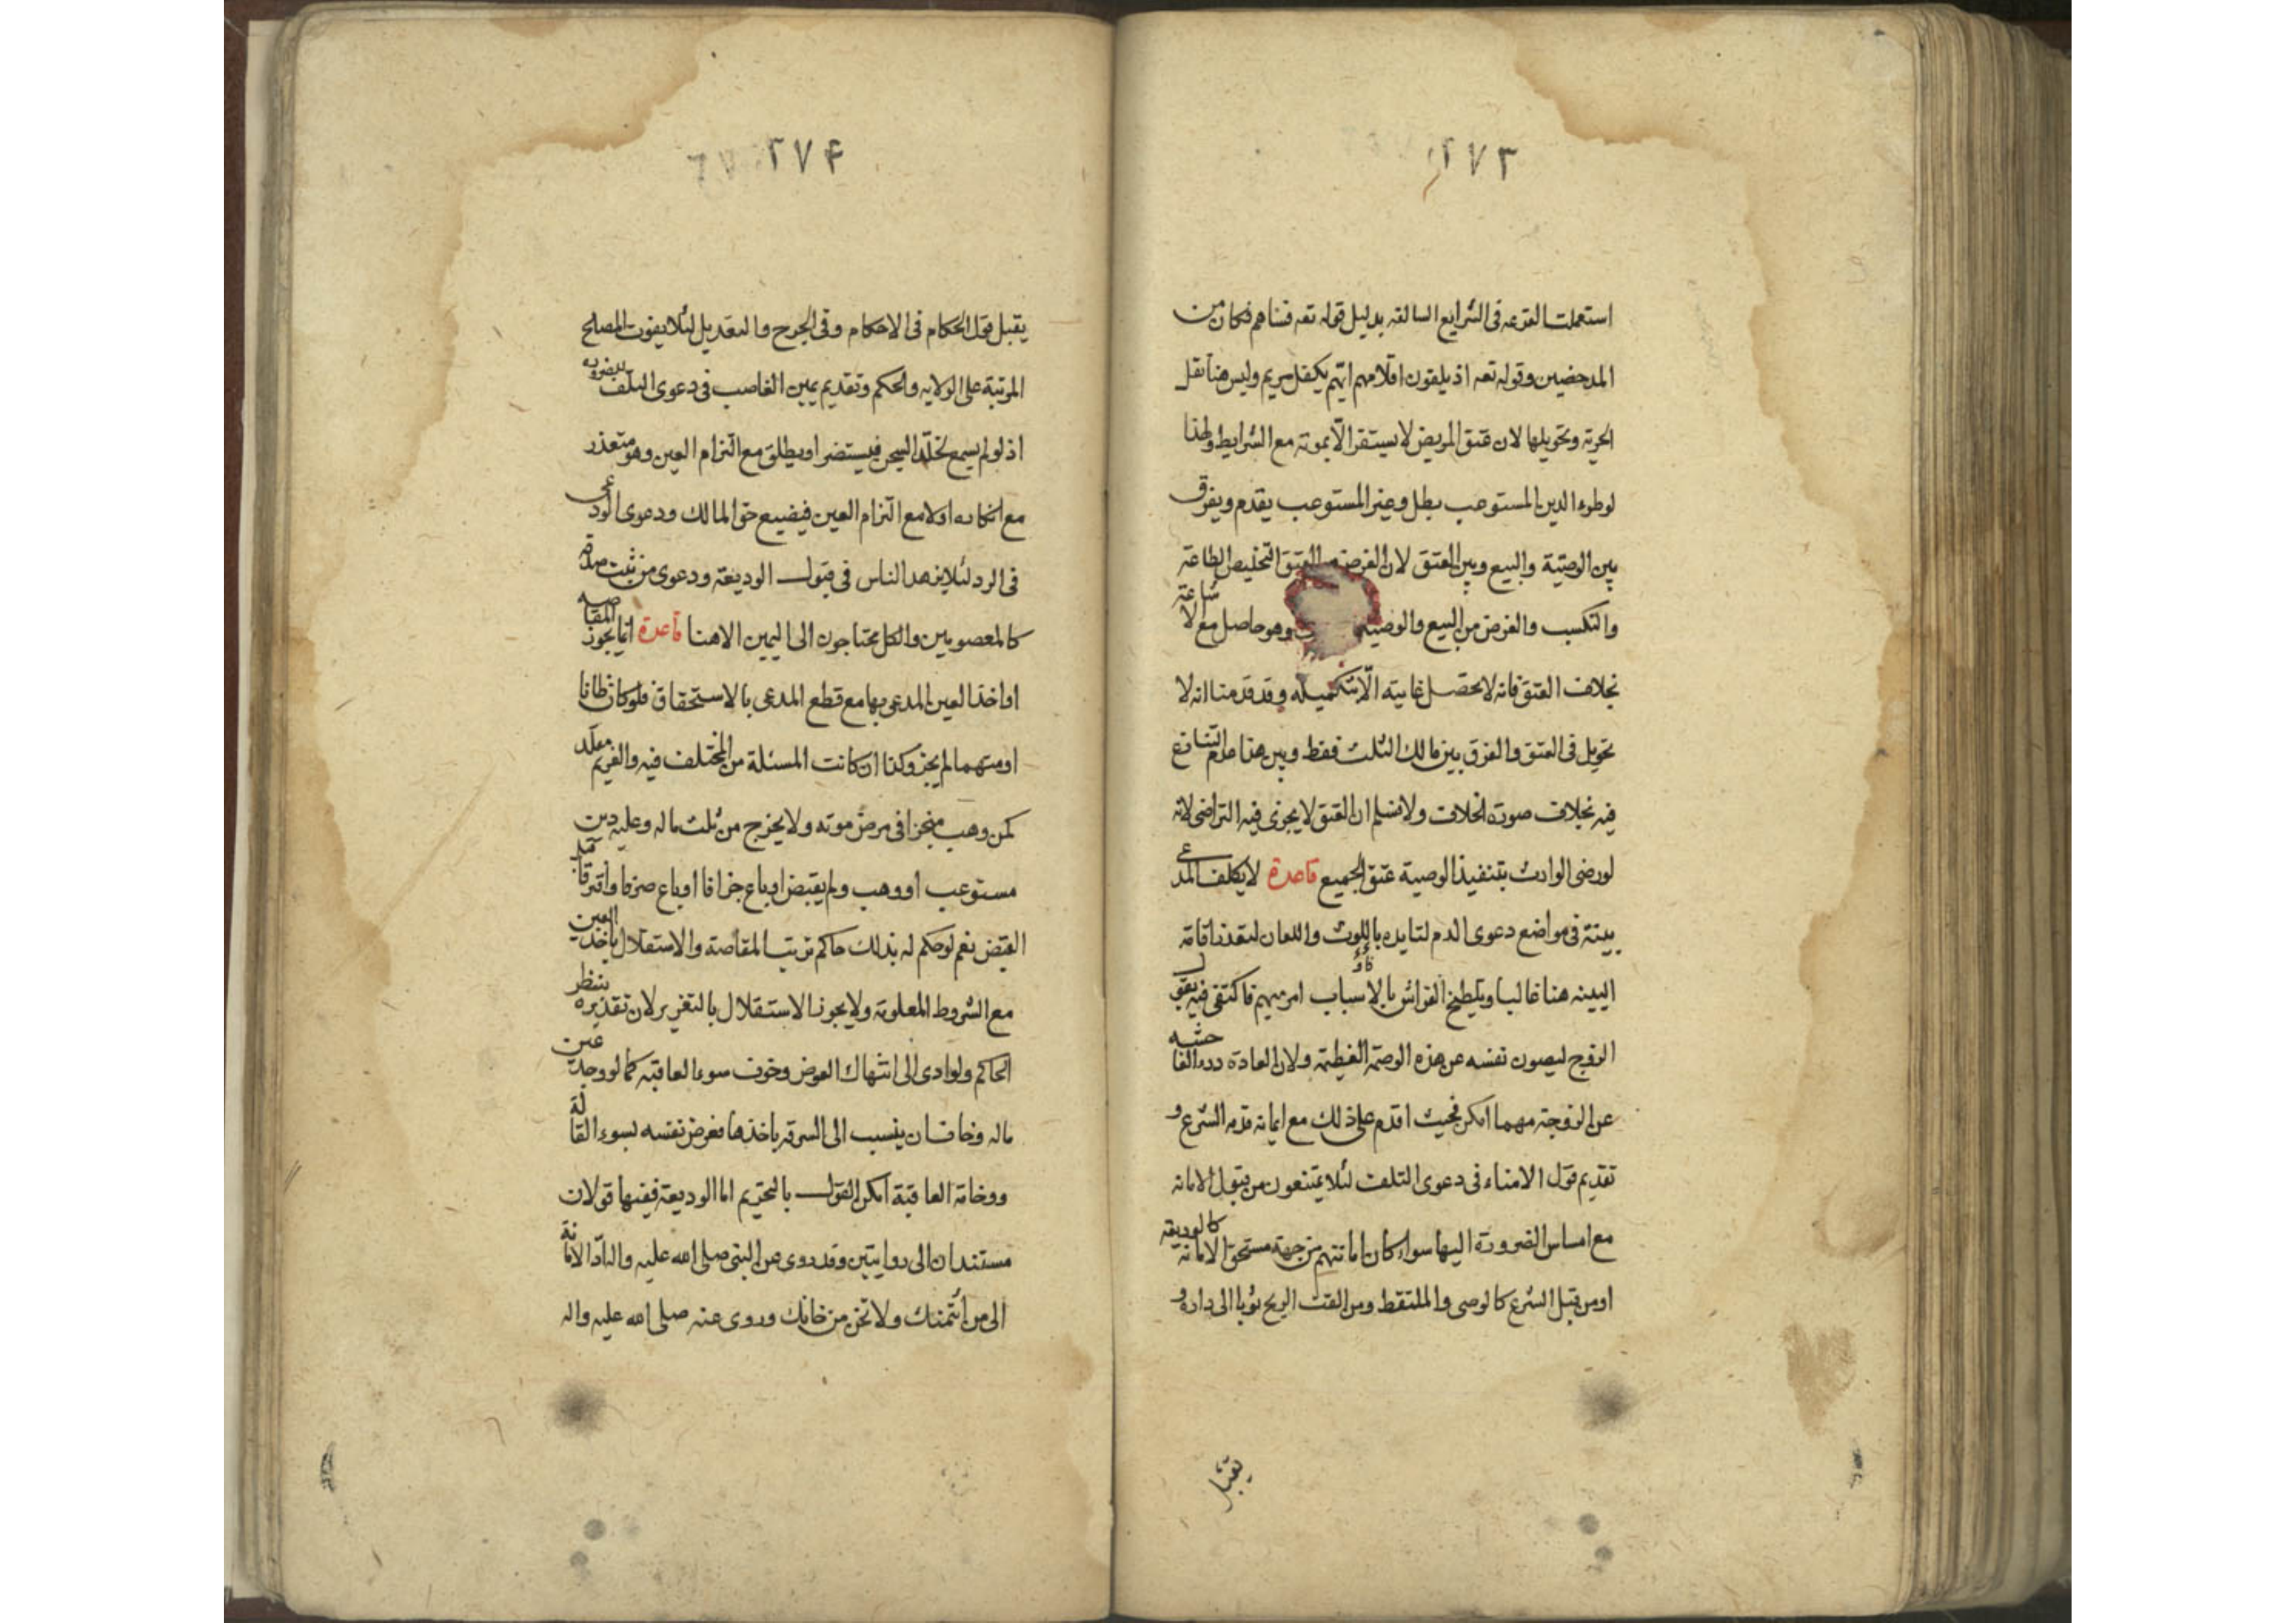 ٢٧٣
استعملت القرعه فى الشرايع السالفه بدليل قوله تعه فساهم فكان من
المدحضين وقوله تعه اذ يلقون اقلامهم ايّهم يكفل مريم وليس هنا نقل
الحرية وتحويلها لان عتق المريض لا يستقر الّا بموته مع الشرايط ولهذا
لو طرء الدين المستوعب بطل وغير المستوعب يقدم ويفرق
بين الوصيّة والبيع وبين العتق لان الغرض العتق التخليص للطاعة
والتكسب والغرض من البيع والوصية وهو حاصل مع الاشاعة
بخلاف العتق فانه لا تحصل غايته الّا بتكميله وقد قدمنا انه لا
تحويل فى العتق والفرق بين مالك الثلث فقط وبين هذا عدم التنازع
فيه بخلاف صورة الخلاف ولا نسلم ان العتق لا يجزى فيه التراضى لانه
لو رضى الوارث بتنفيذ الوصية عتق الجميع قاعدة لا يكلف المدعى
ببينة فى مواضع دعوى الدم لتايده باللوث واللعان لتعذر اقامة
البينه هنا غالبا وتلطيخ الفراش بالاسباب امر مهم فاكتفى فيه بقول
الزوج ليصون نفسه عن هذه الوصمة الغظيمة ولان العادة درء الفاحشه
عن الزوجة مهما امكن فحيث اقدم على ذلك مع ايمانه قدمه الشرع و
تقديم قول الامناء فى دعوى التلف لئلا يمتنعون من قبول الامانه
مع امساس الضرورة اليها سواء كان امانتهم من جهة مستحق الامانه كالوديعة
او من قبل الشرع كالوصى والملتقط ومن القت الريح ثوبا الى داره و
يقبل
٢٧۴
يقبل قول الحكام فى الاحكام وفى الجرح والتعديل لئلا يفوت المصالح
المرتبة على الولايه والحكم وتقديم يمين الغاصب فى دعوى التلف للضرورة
اذ لو لم يسمع لخلّد السجن فيستضر او يطلق مع التزام العين وهو متعذر
مع انكاره اولا مع التزام العين فيضيع حق المالك ودعوى الودعى
فى الرد لئلا يزهد الناس فى قبول الوديعة ودعوى من ثبت صدقه
كالمعصومين والكل محتاجون الى اليمين الا هنا قاعدة انما يجوز المقاصه
او اخذ العين المدعى بها مع قطع المدعى بالاستحقاق فلو كان ظانا
او متهما لم يجز وكذا ان كانت المسئلة من المختلف فيه والغريم مقلد
كمن وهب منجزا فى مرض موته ولا يخرج من ثلث ماله وعليه دين
مستوعب او وهب ولم يقبض او باع جزافا او باع صرفا وافترقا قبل
القبض نعم لو حكم له بذلك حاكم ترتب المقاصة والاستقلال باخذ العين
مع الشروط المعلومة ولا يجوز الاستقلال بالتعزير لان تقديره بنظر
الحاكم ولو ادى الى انتهاك العرض وخوف سوء العاقبه كما لو وجد عين
ماله وخاف ان ينسب الى السرقه باخذها فعرض نفسه لسوء القالة
ووخامة العاقبة امكن القول بالتحريم اما الوديعة ففيها قولان
مستندان الى روايتين وقد روى عن النبى صلى الله عليه واله ادّ الامانة
الى من ائتمنك ولا تخن من خانك وروى عنه صلى الله عليه واله